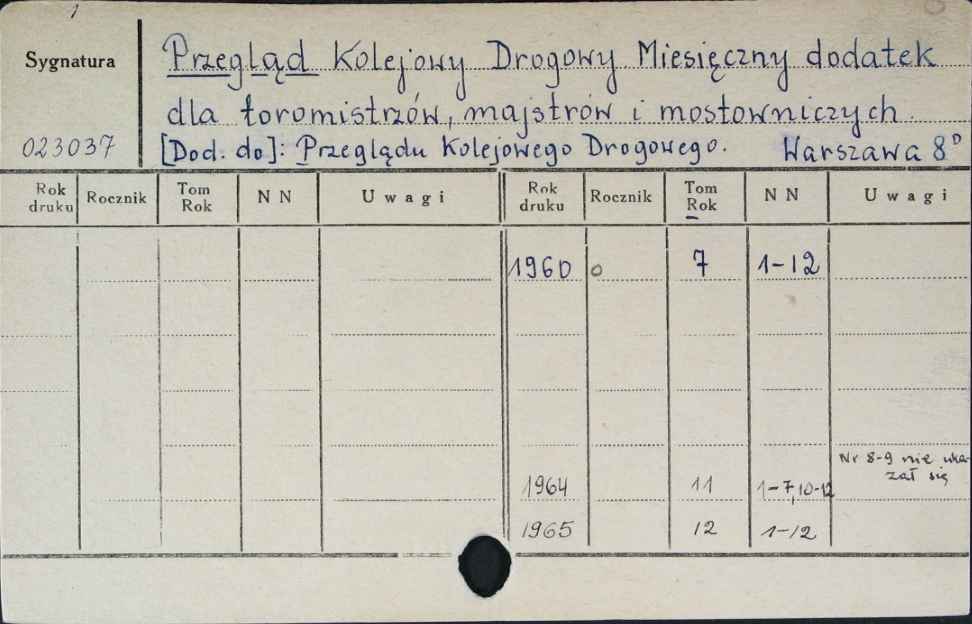 Sygnatura
Przegląd Kolejowy Drogowy Miesięczny dodatek
dla toromistrzów, majstrów i mostowniczych.
023037
[Dod. do]: Przeglądu Kolejowego Drogowego. Warszawa 8°
Rok druku Rocznik Tom Rok NN Uwagi Rok druku Rocznik Tom Rok NN Uwagi
1960 o 7 1-12
1964 11 1-7,10-12 Nr 8-9 nie uka-
zał się
1965 12 1-12